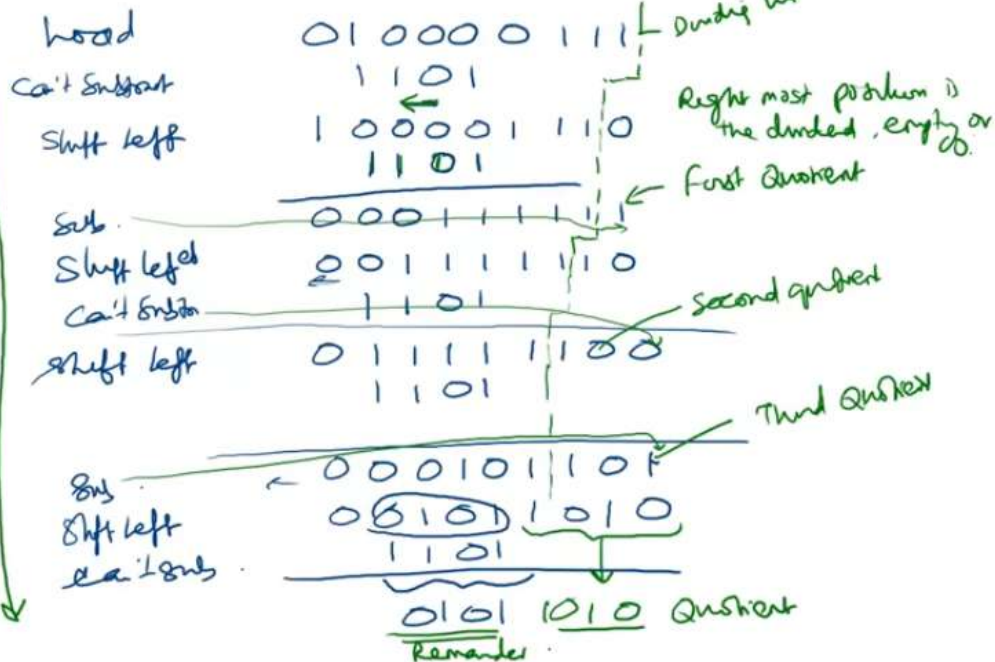 Load 0 1 0 0 0 0 1 1 1 Dividing
Can't Subtract 1 1 0 1
Right most position is
Shift Left 1 0 0 0 0 1 1 1 0 the divided, empty or
1 1 0 1
First Quotient
Sub. 0 0 0 1 1 1 1 1 1
Shift left 0 0 1 1 1 1 1 1 0
Can't 1 1 0 1 Second quotient
Shift left 0 1 1 1 1 1 1 0 0
1 1 0 1
Third Quotient
Sub. 0 0 0 1 0 1 1 0 1
Shift Left 0 0 1 0 1 1 0 1 0
Can't sub. 1 1 0 1
0101 1010 Quotient
Remander.